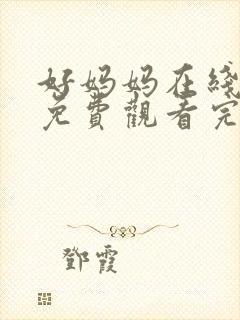 好妈妈在线
免費觀看完
鄧霞